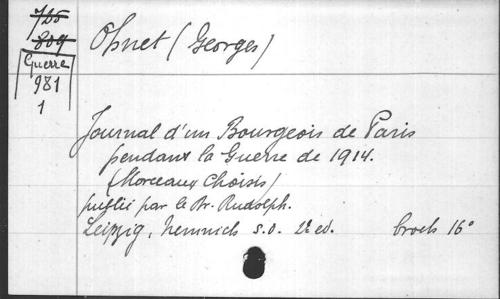 725
809
Guerre
981
1
Ohnet (Georges)
Journal d'un Bourgeois de Paris
pendant la Guerre de 1914.
(Morceaux Choisis)
publié par le Dr. Rudolph.
Leipzig, Nemnich s.d. 2e ed. broch 16°